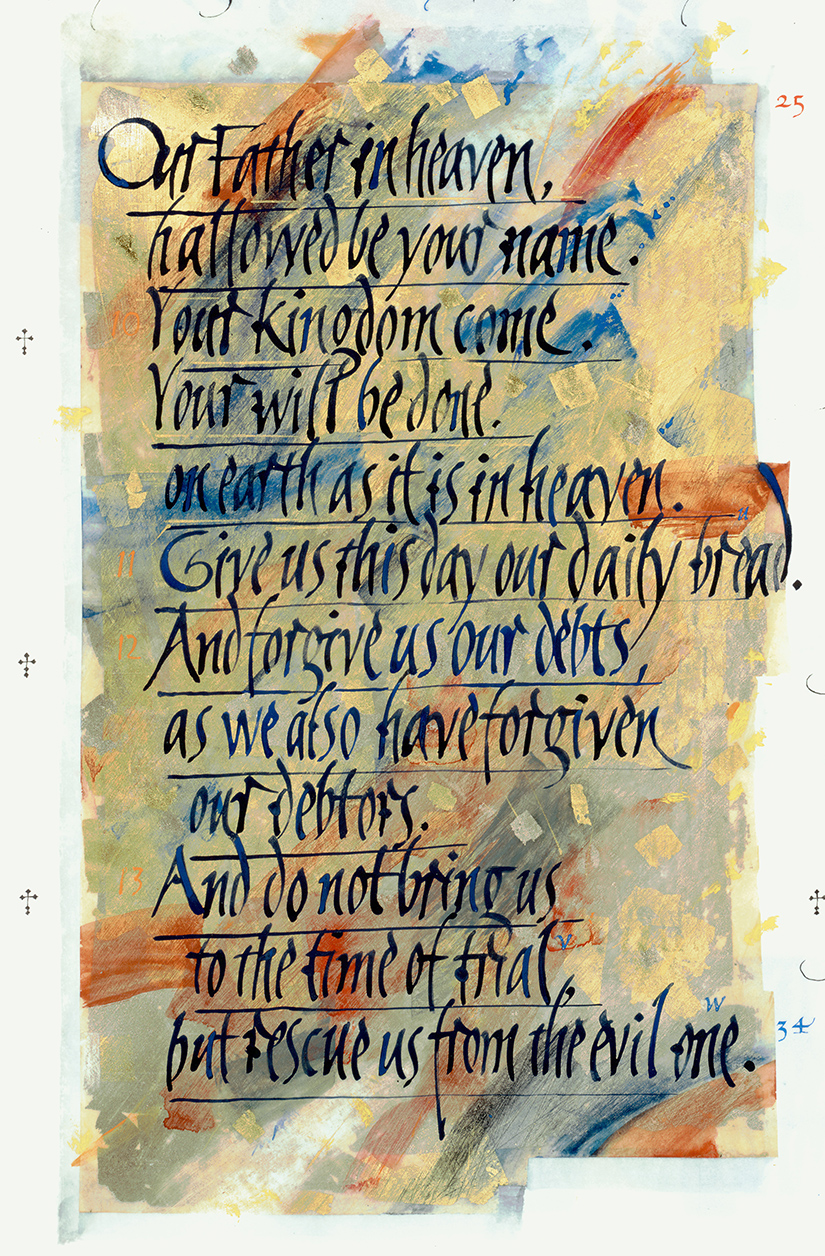 25
Our Father in heaven,
hallowed be your name.
10 Your kingdom come.
Your will be done.
on earth as it is in heaven.
11 Give us this day our daily bread. u
12 And forgive us our debts,
as we also have forgiven
our debtors.
13 And do not bring us
to the time of trial, v
but rescue us from the evil one. w
34